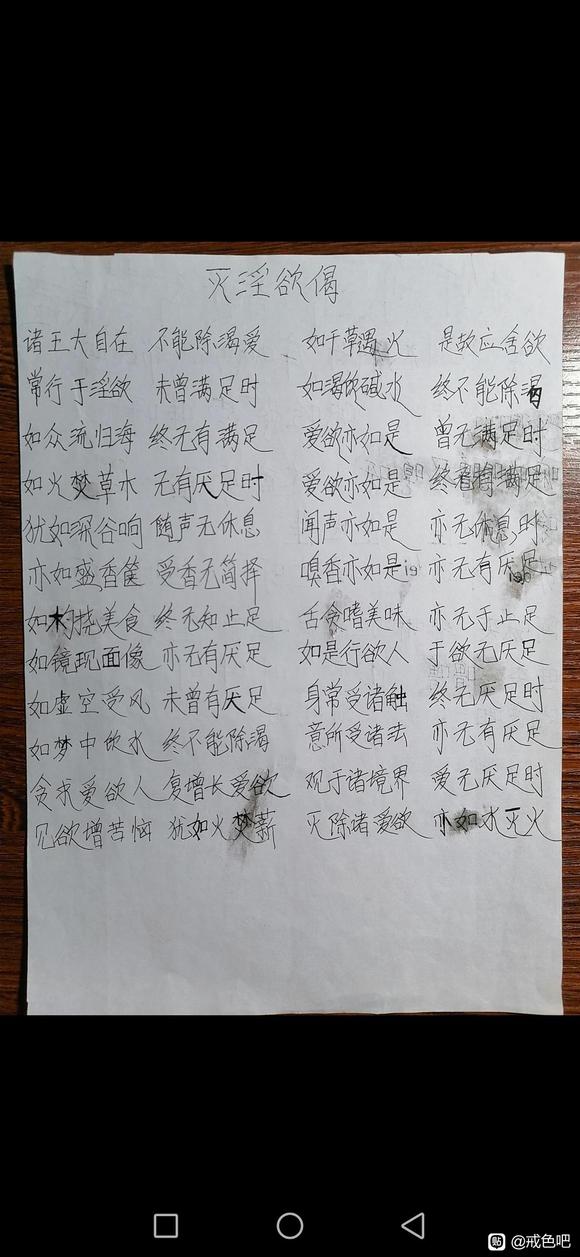 灭淫欲偈
诸王大自在 不能除渴爱 如干草遇火 是故应舍欲
常行于淫欲 未曾满足时 如渴饮碱水 终不能除渴
如众流归海 终无有满足 爱欲亦如是 曾无满足时
如火焚草木 无有厌足时 爱欲亦如是 终 满足
犹如深谷响 随声无休息 闻声亦如是 亦无休息时
亦如盛香箧 受香无简择 嗅香亦如是 亦无有厌足
如杓挠美食 终无知止足 舌贪嗜美味 亦无于止足
如镜现面像 亦无有厌足 如是行欲人 于欲无厌足
如虚空受风 未曾有厌足 身常受诸触 终无厌足时
如梦中饮水 终不能除渴 意所受诸法 亦无有厌足
贪求爱欲人 复增长爱欲 观于诸境界 爱无厌足时
见欲增苦恼 犹如火焚薪 灭除诸爱欲 亦如水灭火
贴 @戒色吧